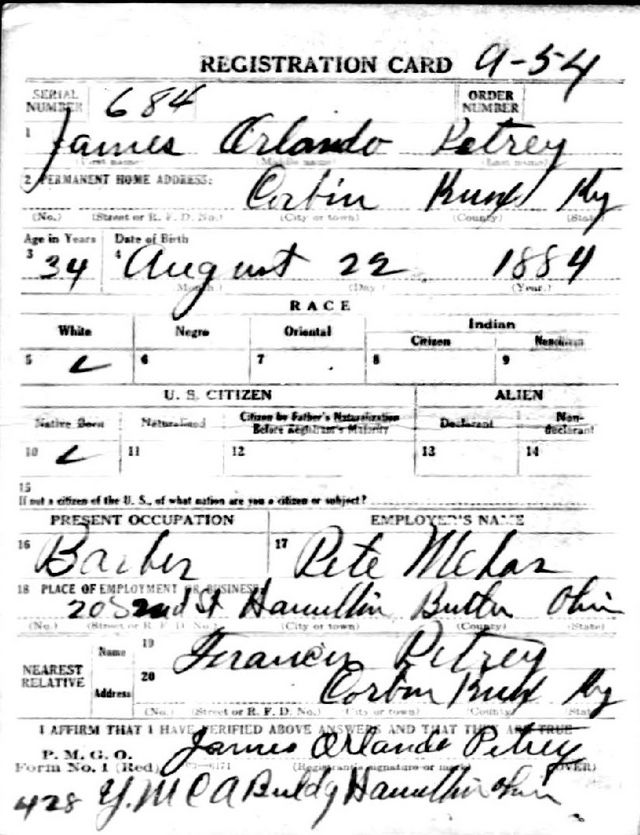 REGISTRATION CARD 9-54
SERIAL NUMBER 684 ORDER NUMBER
1 James Orlando Petrey
(First name) (Middle name) (Last name)
2 PERMANENT HOME ADDRESS:
Corbin Knox Ky
(No.) (Street or R. F. D. No.) (City or town) (County) (State)
Age in Years Date of Birth
3 34 4 August 22 1884
(Month.) (Day.) (Year.)
RACE
White Negro Oriental Indian
Citizen Noncitizen
5 6 7 8 9
U. S. CITIZEN ALIEN
Native Born Naturalized Citizen by Father's Naturalization Before Registrant's Majority Declarant Non-declarant
10 11 12 13 14
15
If not a citizen of the U. S., of what nation are you a citizen or subject?
PRESENT OCCUPATION EMPLOYER'S NAME
16 Barber 17 Pete
18 PLACE OF EMPLOYMENT OR BUSINESS:
20 S 2nd St Hamilton Butler Ohio
(No.) (Street or R. F. D. No.) (City or town) (County) (State)
NEAREST RELATIVE
Name 19 Petrey
Address 20 Corbin Knox Ky
(No.) (Street or R. F. D. No.) (City or town) (County) (State)
I AFFIRM THAT I HAVE VERIFIED ABOVE ANSWERS AND THAT THEY ARE TRUE
P. M. G. O.
Form No. 1 (Red) James Orlando Petrey
(Registrant's signature or mark) (OVER)
428 Y.M.C.A Buldg Hamilton Ohio